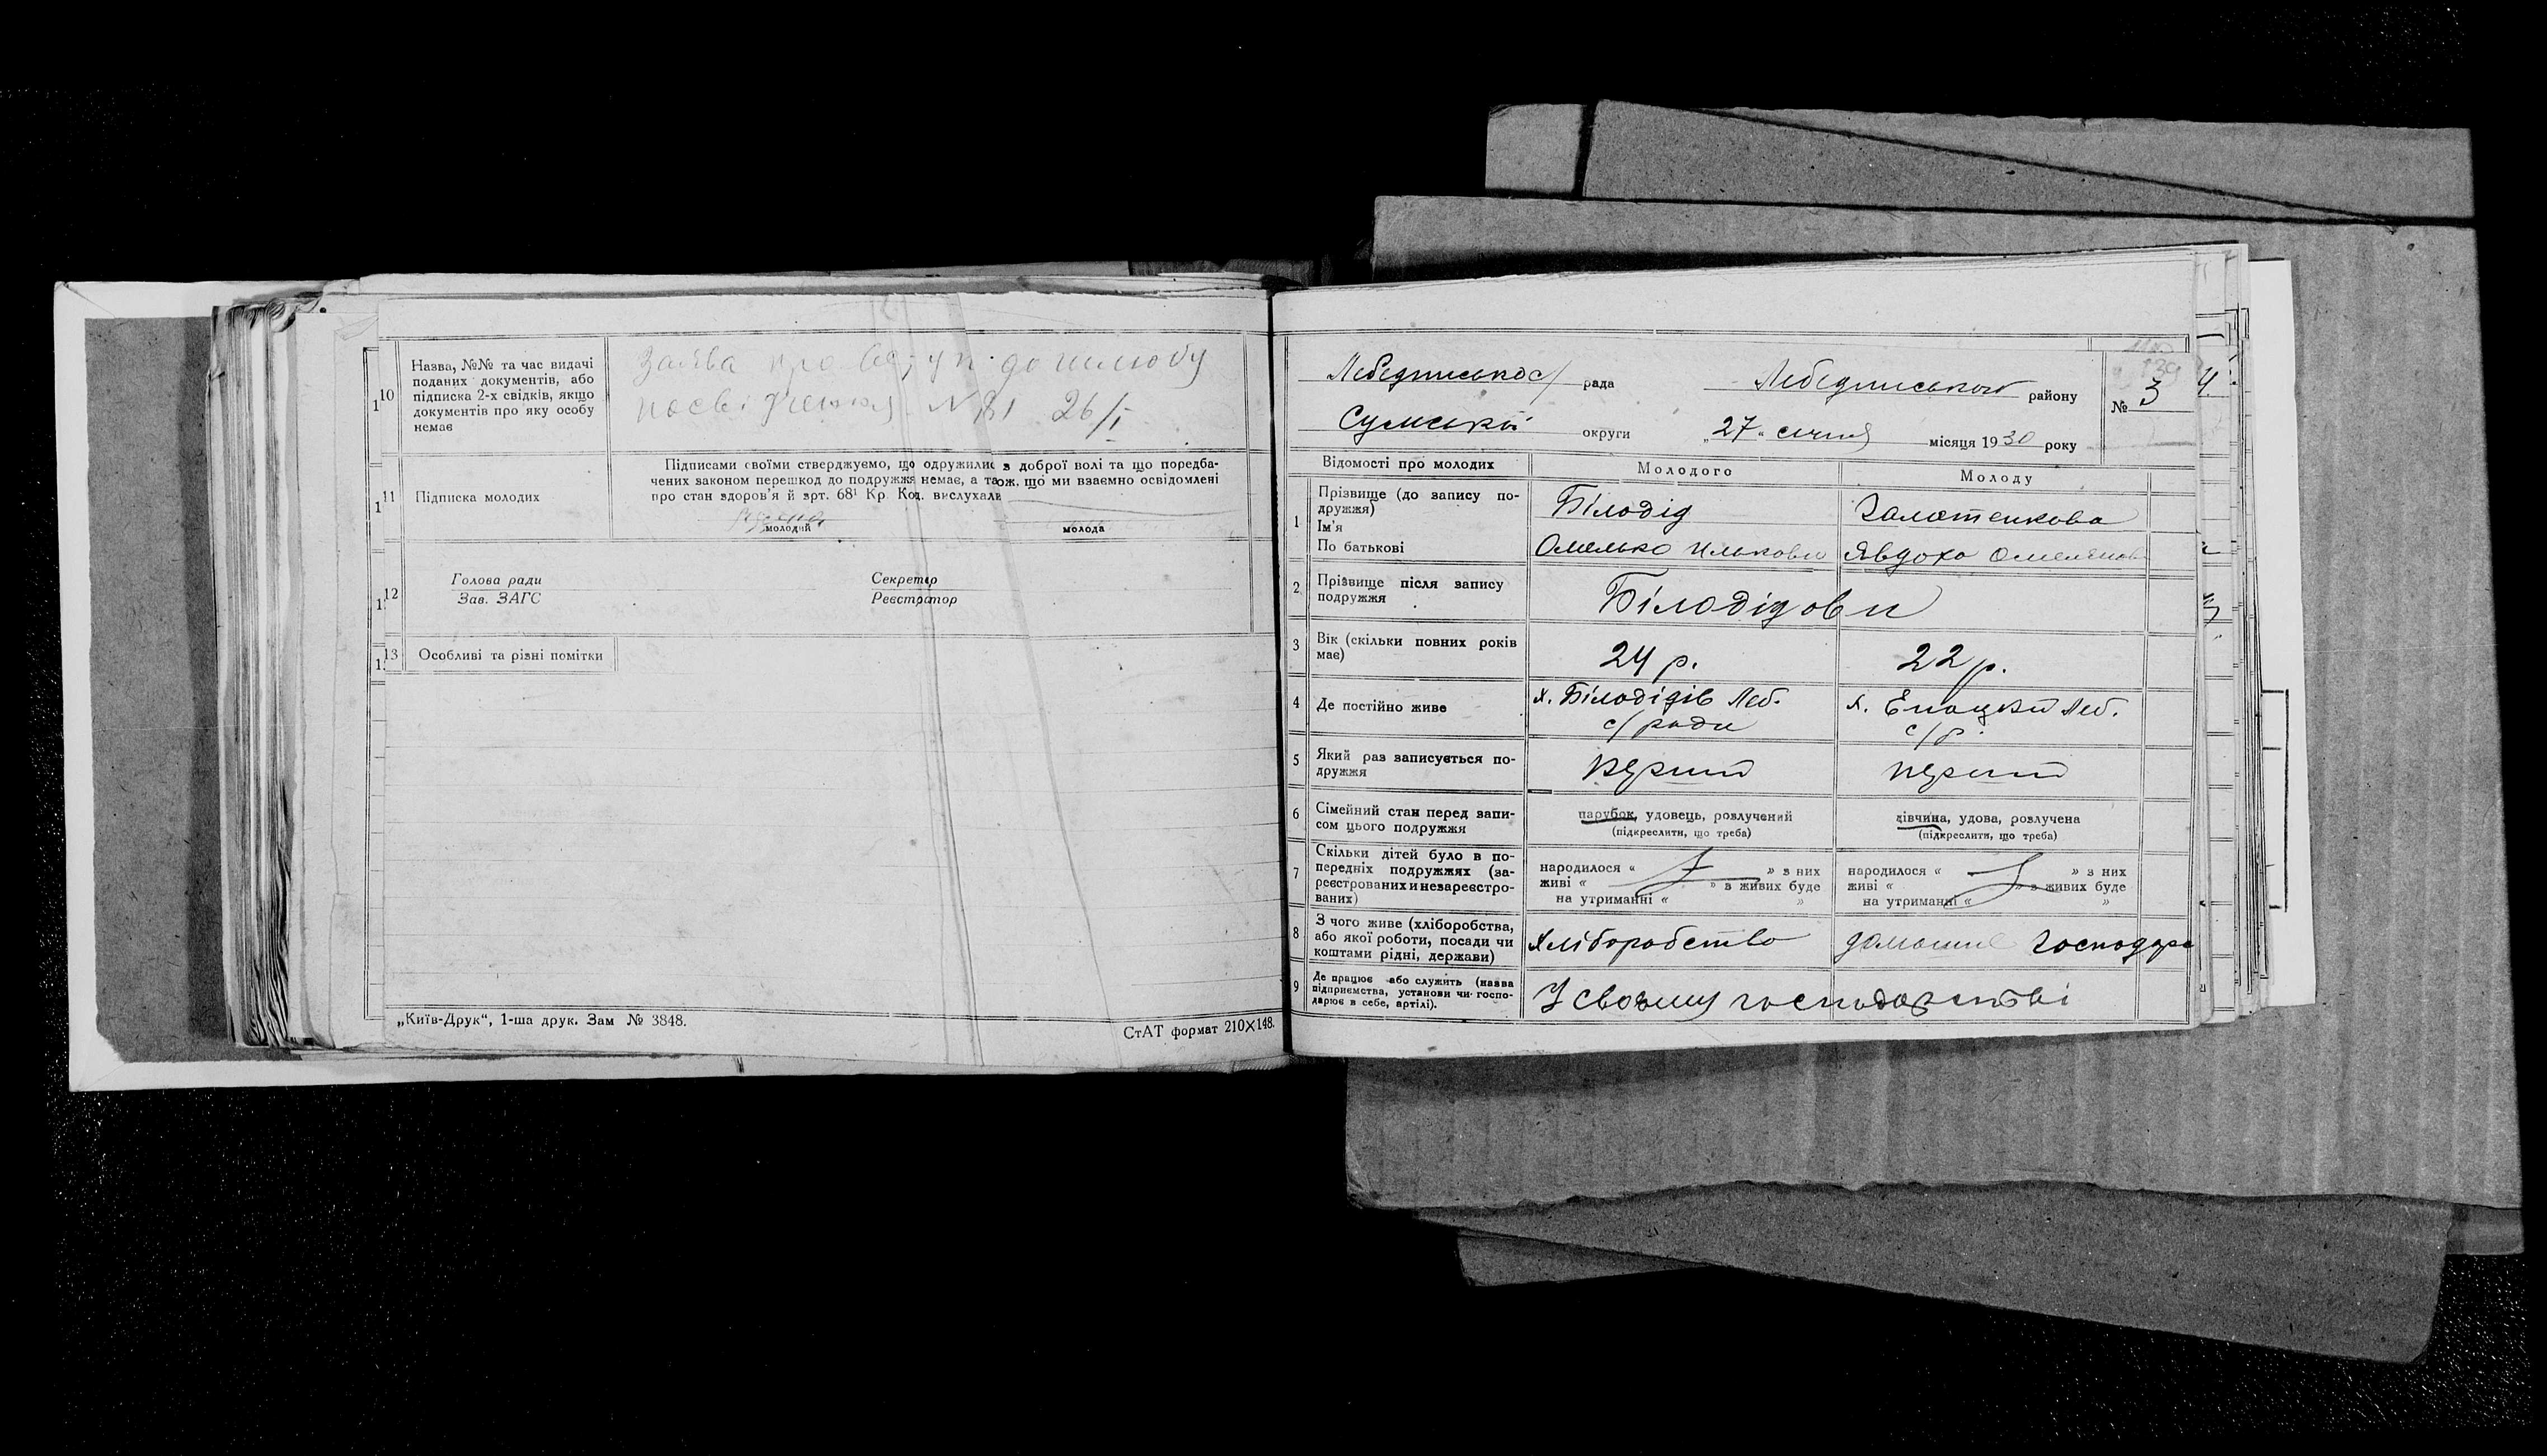 10
Назва, №№ та час видачі
поданих документів, або
підписка 2-х свідків, якщо
документів про яку особу
немає
Заява про вступ до шлюбу
посвідчення N 81 26/I
11
Підписка молодих
Підписами своїми стверджуємо, що одружились з доброї волі та що поредба-
чених законом перешкод до подружжя немає, а також, що ми взаємно освідомлені
про стан здоров'я й зрт. 68¹ Кр. Код. вислухали
молодий
молода
12
Голова ради
Зав. ЗАГС
Секретар
Реєстратор
13
Особливі та різні помітки
„Київ-Друк“, 1-ша друк. Зам № 3848.
СтАТ формат 210×148.
Лебединської с/ рада Лебединського району
№ 3
Сумської округи „27“ січня місяця 1930 року
Відомості про молодих
Молодого
Молоду
1
Прізвище (до запису по-
дружжя)
Ім'я
По батькові
Білодід
Омелько Илькови
Явдоха Омелянов
2
Прізвище після запису
подружжя
Білодідови
3
Вік (скільки повних років
має)
24 р.
22 р.
4
Де постійно живе
х. Білодідів Леб.
с/ради
х. Леб.
с/р.
5
Який раз записується по-
дружжя
перший
перший
6
Сімейний стан перед запи-
сом цього подружжя
парубок, удовець, розлучений
(підкреслити, що треба)
дівчина, удова, розлучена
(підкреслити, що треба)
7
Скільки дітей було в по-
передніх подружжях (за-
реєстрованих и незареєстро-
ваних)
народилося « » з них
живі « » з живих буде
на утриманні « »
народилося « » з них
живі « » з живих буде
на утриманні « »
8
З чого живе (хліборобства,
або якої роботи, посади чи
коштами рідні, держави)
хліборобство
домашнє господарс
9
Де працює або служить (назва
підприємства, установи чи госпо-
дарює в себе, артілі).
У своєму господарстві